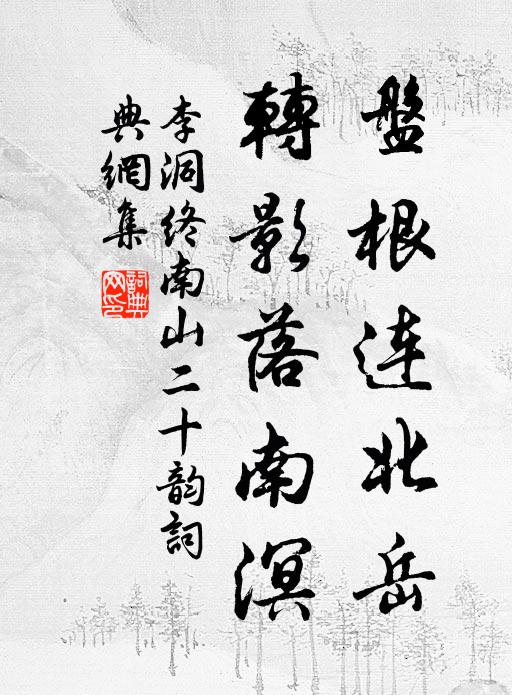 盤根連北岳
轉影落南溟
李洞終南山二十韵詞
典網集
詞典
网印